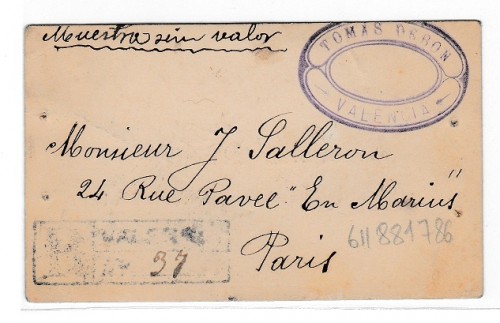 Muestra sin valor
TOMAS DERON
VALENCIA
Monsieur J. Salleron
24 Rue Pavee "En Marius"
Paris
37
611 881 786